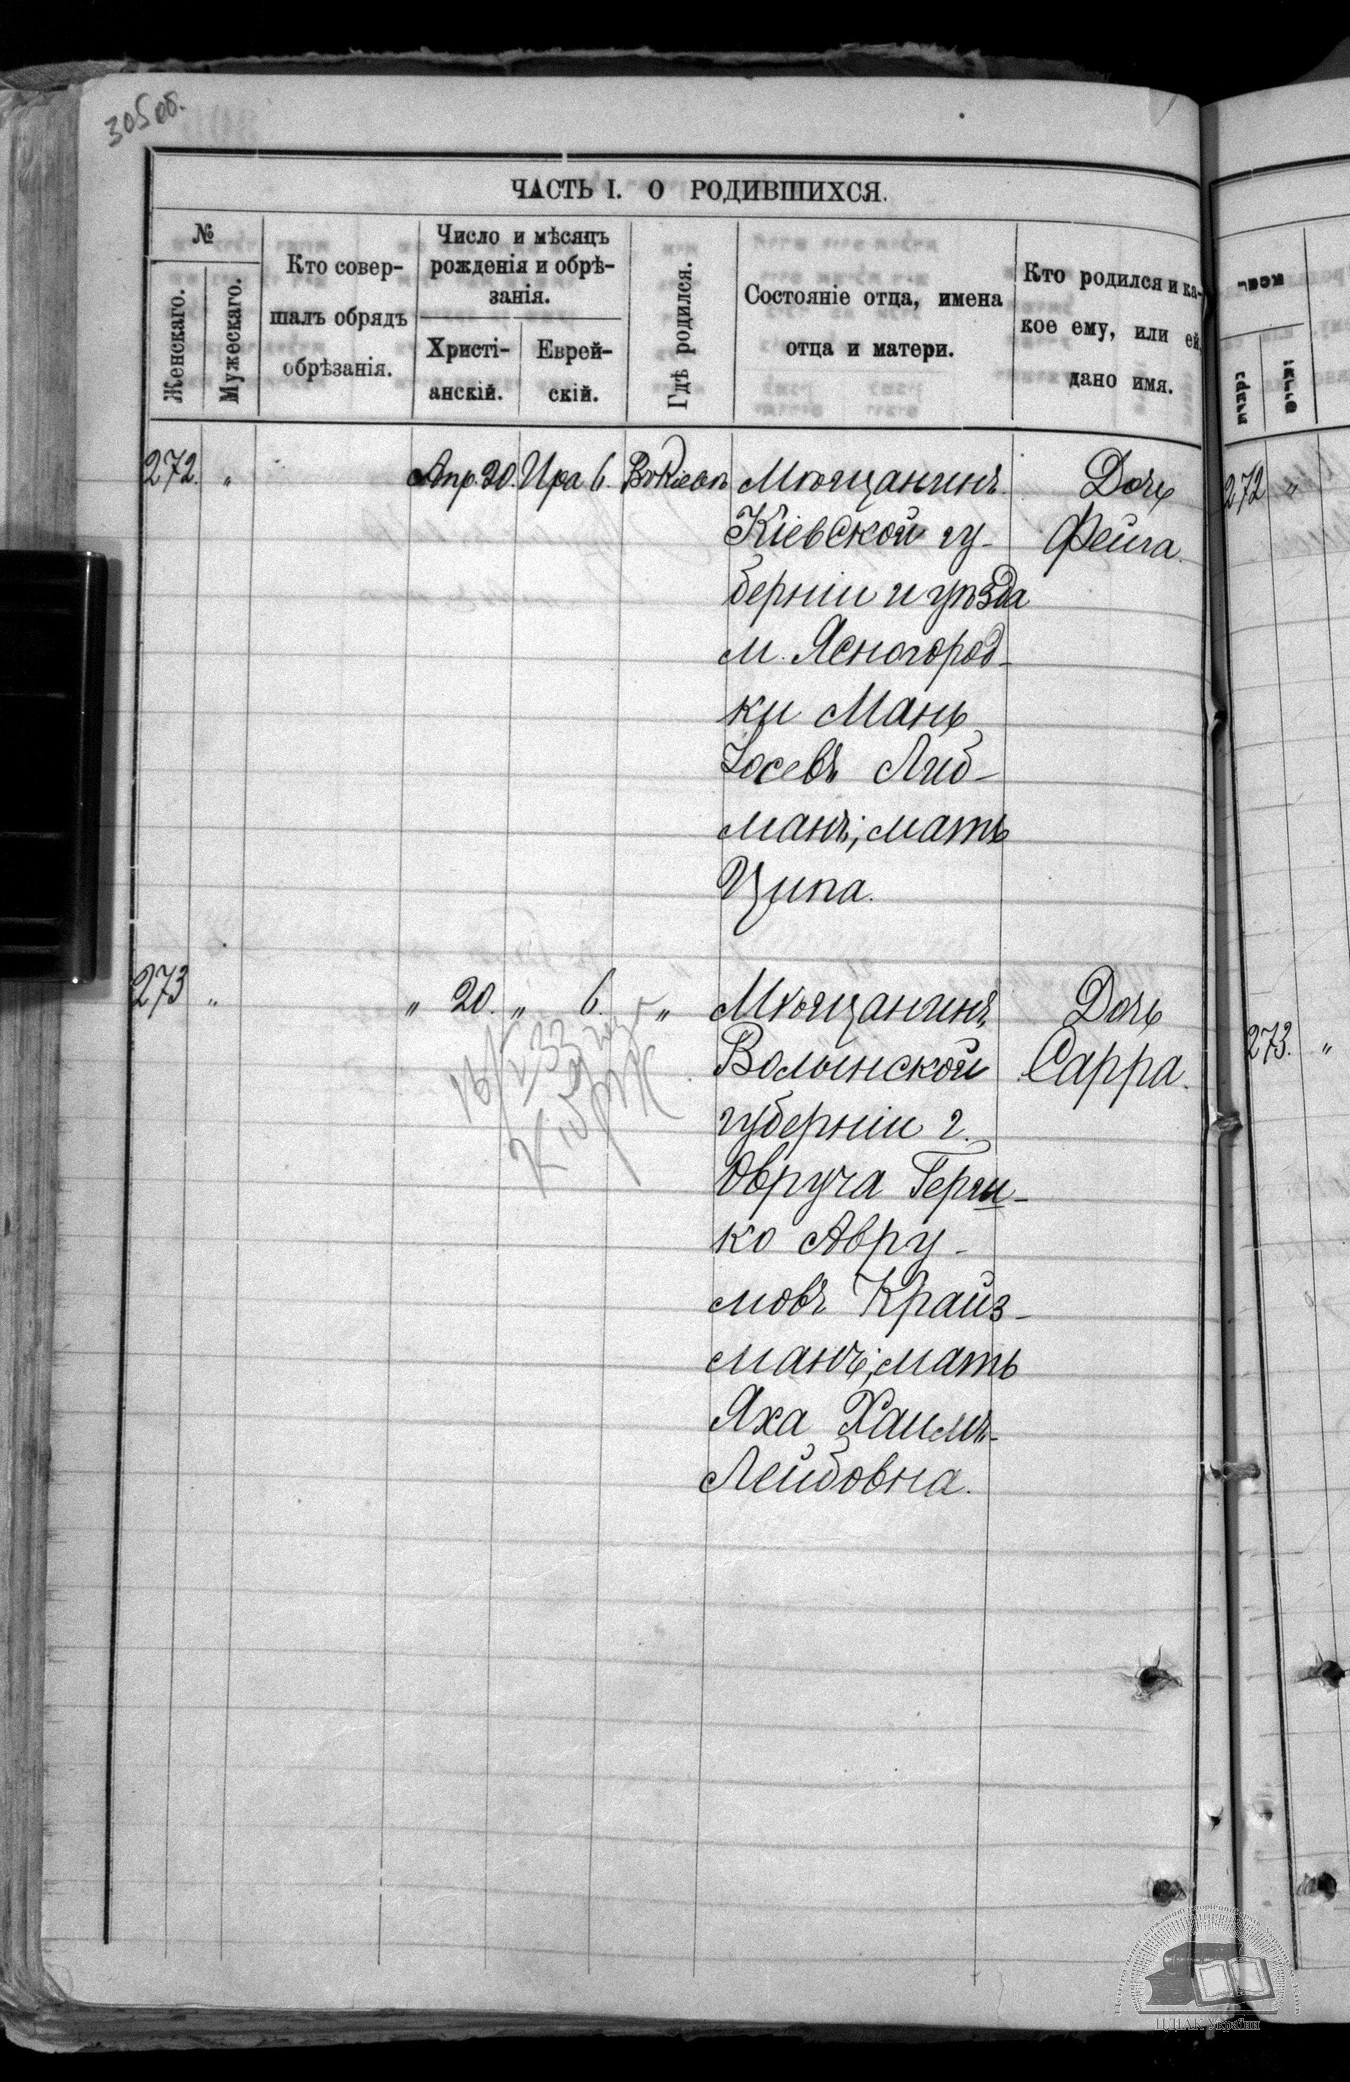 305об.
ЧАСТЬ I. О РОДИВШИХСЯ.
№
Женскаго.
Мужескаго.
Кто совер-
шалъ обрядъ
обрѣзанія.
Число и мѣсяцъ
рожденія и обрѣ-
занія.
Христі-
анскій.
Еврей-
скій.
Гдѣ родился.
Состояніе отца, имена
отца и матери.
Кто родился и ка-
кое ему, или ей,
дано имя.
272. " Апр. 20. Ира 6. Въ Кіевѣ Мѣщанинъ Дочь
Кіевской гу- Фейга.
берніи и уѣзда
м. Ясногород-
ки Мань
Іосевъ Либ-
манъ, мать
Ципа.
273 " " 20. " 6. " Мѣщанинъ Дочь
Волынской Сарра.
губерніи г.
Овруча Герш-
ко Авру-
мовъ Крайз-
манъ, мать
Яха Хаимъ-
Лейбовна.
16/I 33
272 "
273. "
ЦДІАК України